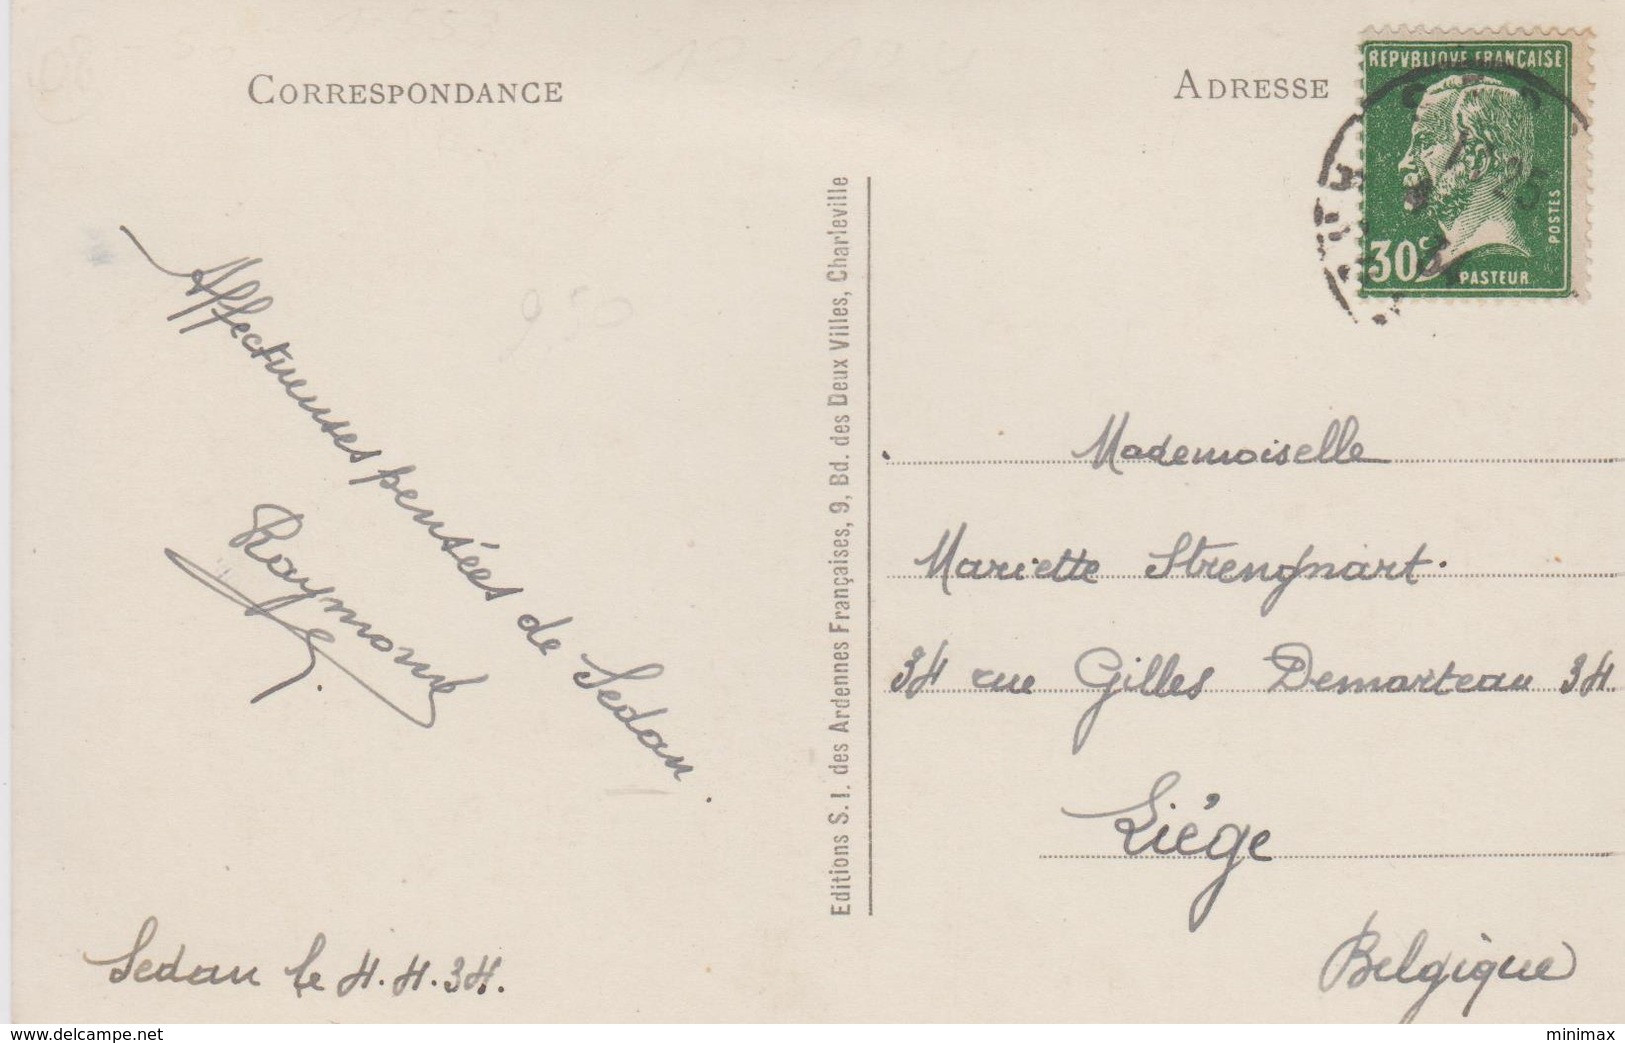 CORRESPONDANCE
ADRESSE
REPVBLIQVE FRANÇAISE
POSTES
30c
PASTEUR
17 25
Affectueuses pensées de Sedan.
Raymonde
Sedan le 4.4.34.
Editions S. I. des Ardennes Françaises, 9, Bd. des Deux Villes, Charleville
Mademoiselle
Mariette Strengnart.
34 rue Gilles Demarteau 34
Liége
Belgique
www.delcampe.net
minimax